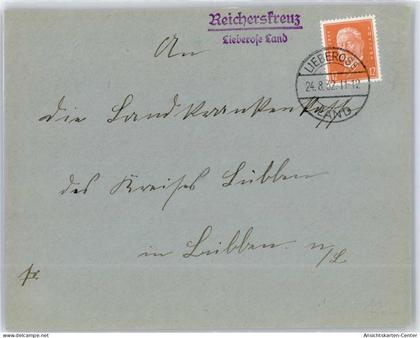 Reicherskreuz
Lieberose Land
LIEBEROSE
24.8.32.11-12
LAND
An
die Landkrankenkasse
des Kreises Lübben
in Lübben n/L
delcampe.net
Ansichtskarten-Center